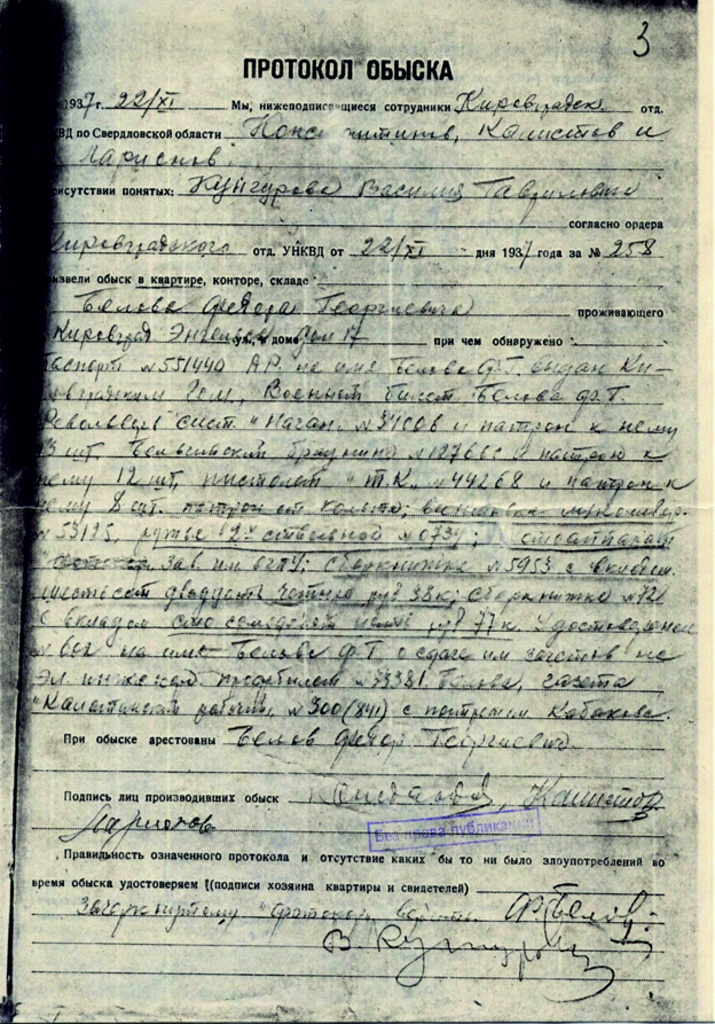 3
ПРОТОКОЛ ОБЫСКА
1937 г. 22/XI Мы, нижеподписавшиеся сотрудники Кировградск. отд.
ВД по Свердловской области Калистов и
Ларионов
рисутствии понятых: Кунгурова Василия Гавриловича
согласно ордера
Кировградского отд. УНКВД от 22/XI дня 1937 года за № 258
извели обыск в квартире, конторе, складе
Белова Федора Георгиевича проживающего
Кировград Энгельса ул., в доме дом 17 при чем обнаружено:
Паспорт №551440 А.Р. на имя Белова Ф.Г. выдан Ки-
ровградским Военный билет Белова Ф.Г.
Револьвер сист. "Наган" и патрон к нему
13 шт. Бельгийский браунинг и патрон к
нему 12 шт, пистолет "Т.К." №44268 и патрон к
нему 8 шт. патрон от кольта; винтовка
№53195, ружье 2х ствольное №0734; фотоаппарат
зав. им ОГПУ; сберкнижка №5953 с вкладом
шестьсот двадцать четыре руб 38 к; сберкнижка
с вкладом сто семьдесят пять руб 77 к. Удостоверение
на имя Белова Ф.Г. о сдаче им зачетов на
Белова, газета
рабочий" №300 (841) с портретом Кабакова.
При обыске арестованы Белов Федор Георгиевич
Подпись лиц производивших обыск Калистов
Ларионов
Без права публикации
Правильность означенного протокола и отсутствие каких бы то ни было злоупотреблений во
время обыска удостоверяем (подписи хозяина квартиры и свидетелей)
Зачеркнутому верить. Ф. Белов
В. Кунгуров